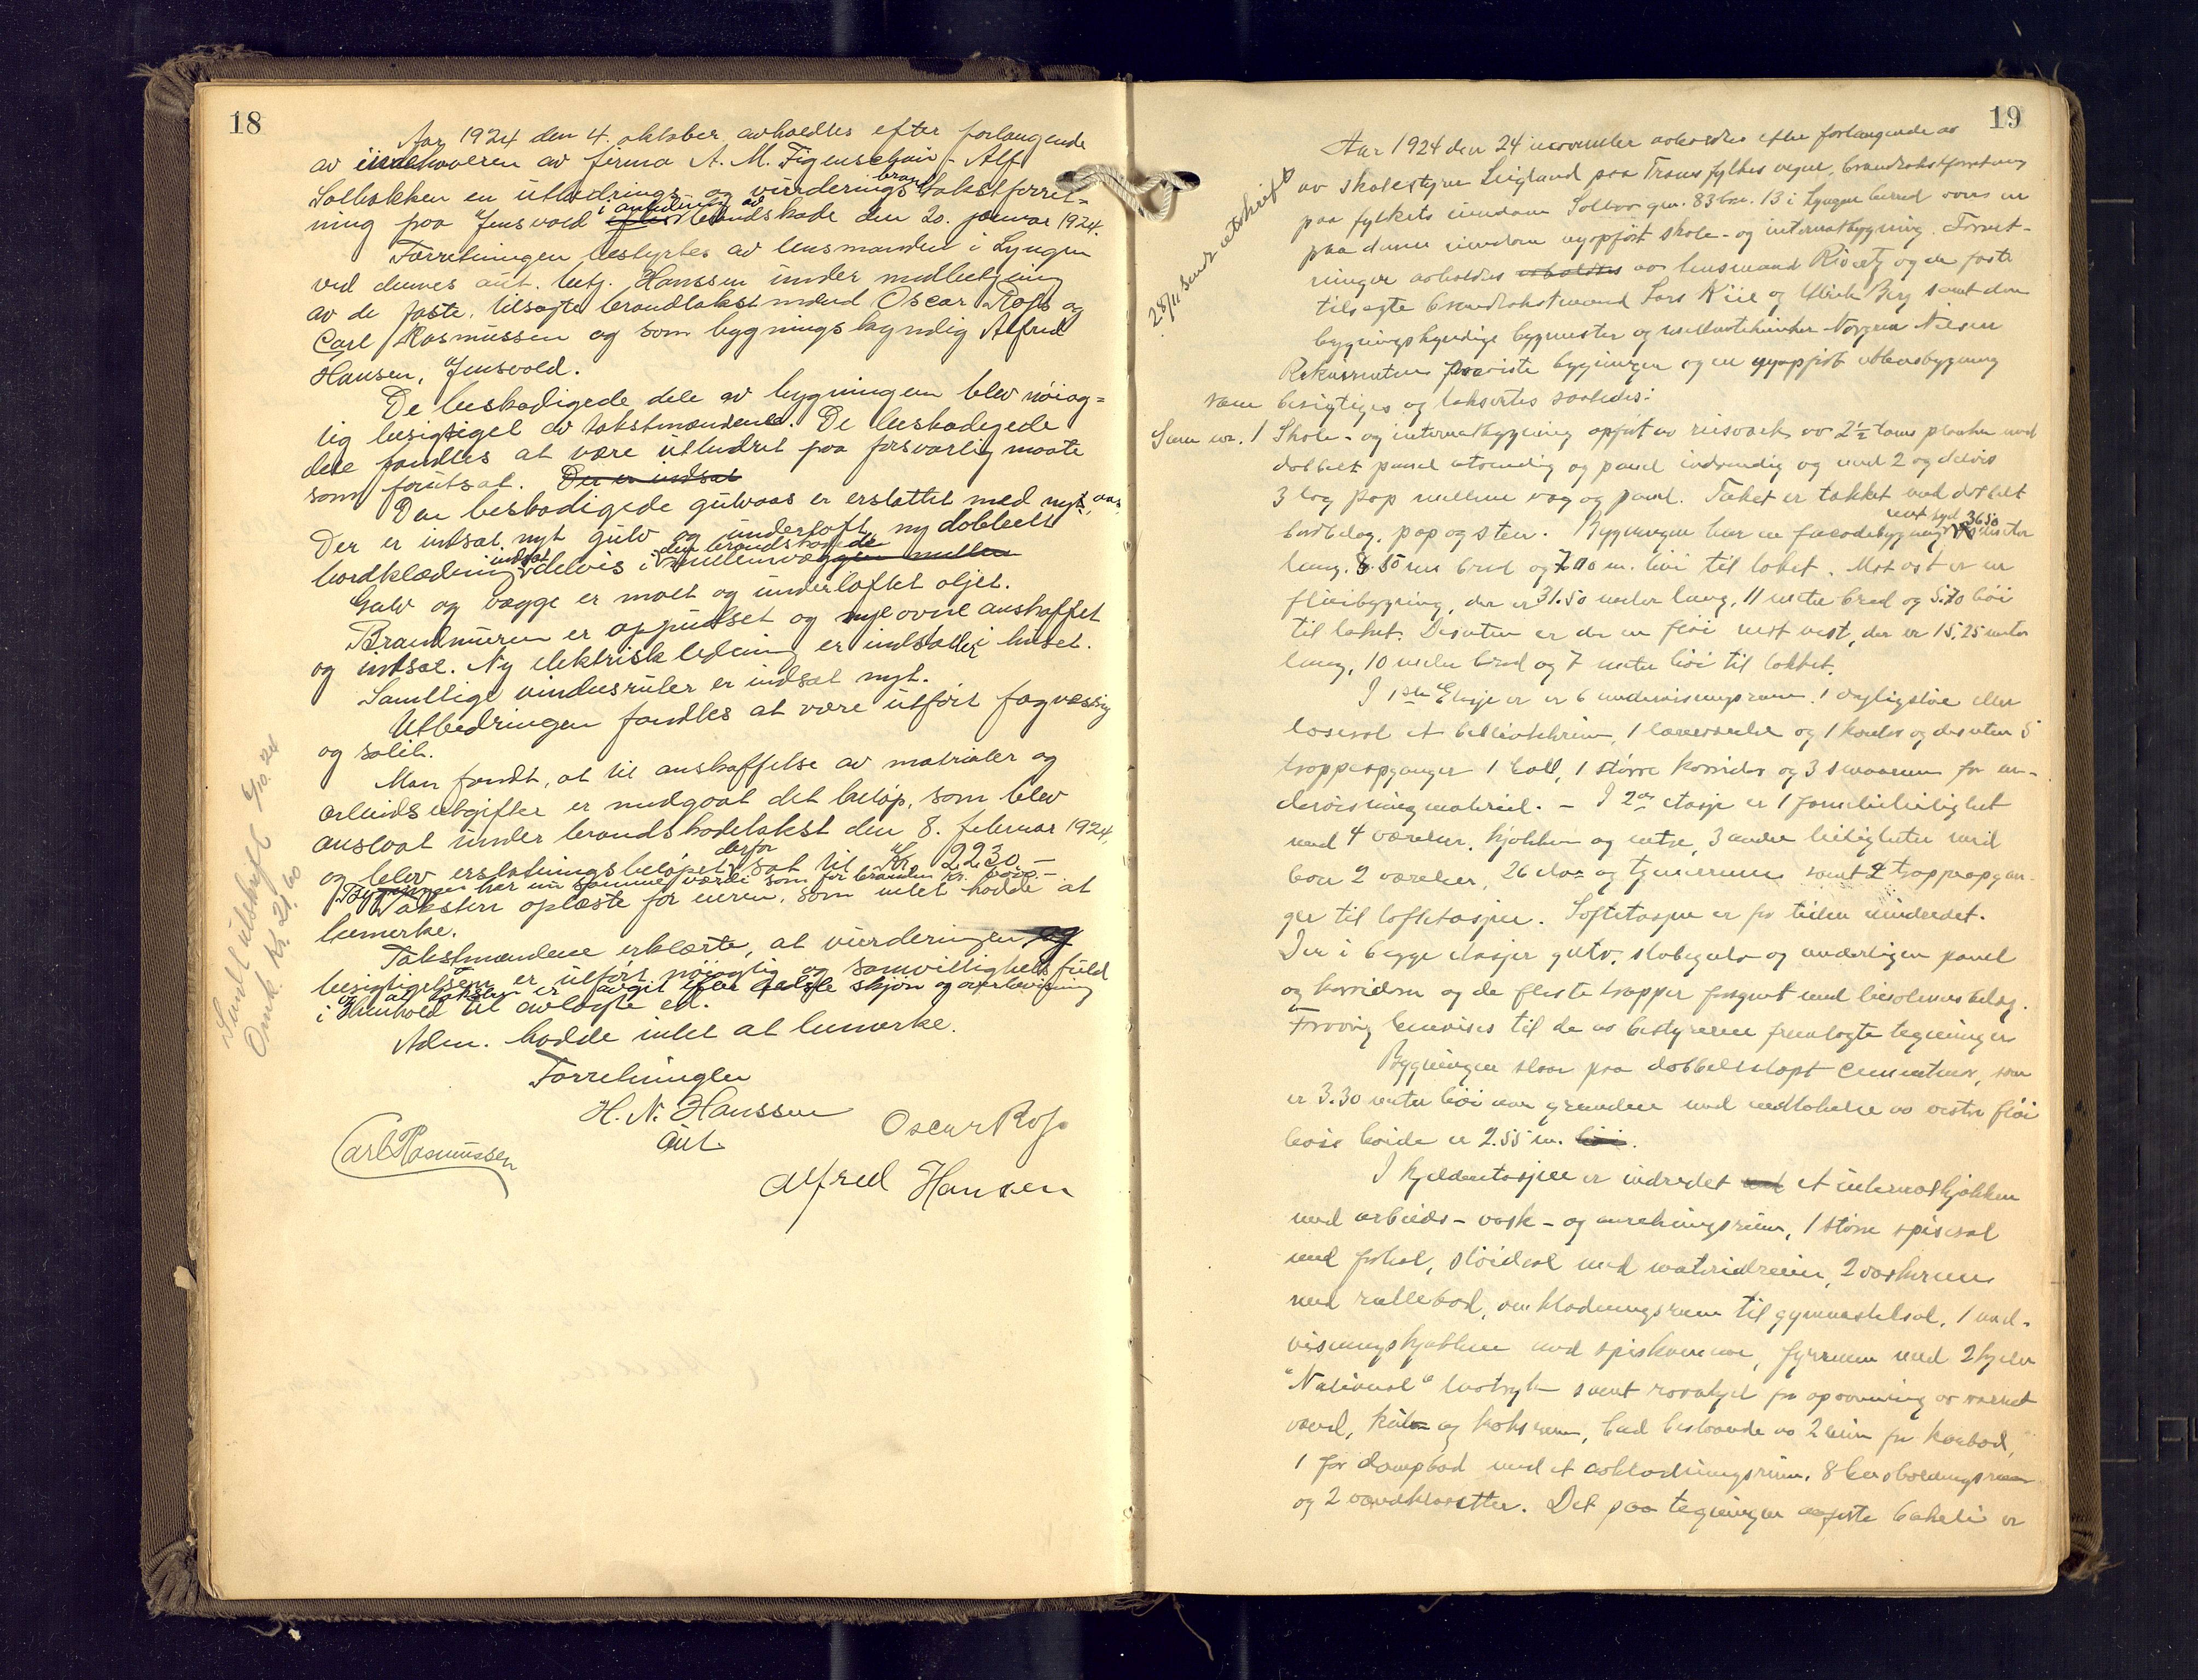 18
Aar 1924 den 4. oktober avholdtes efter forlangende
av indehaveren av firma A. M. Figenschau - Alf
Solbakken en utbedrings- og vurderings brandtakstforret-
ning paa Jensvold i anledning av brandskade den 20. januar 1924.
Forretningen bestyrtes av lensmanden i Lyngen
ved dennes aut. betj. Hanssen under medbetjening
av de faste, tilsagte brandtakstmænd Oscar Ross og
Carl Rasmussen og som bygningskyndig Alfred
Hansen, Jensvold.
De beskadigede dele av bygningen blev nøiag=
tig besigtiget av takstmændene. De beskadigede
dele fandtes at være utbedret paa forsvarlig maate
som forutsat. Der er indsat
Den beskadigede gulvaas er erstattet med ny aas
Der er indsat nyt gulv og underloft, ny dobbelt
bordklædning indsat delvis i den brandskadede mellemvæggen mellem
Gulv og vægge er malt og underloftet oljet.
Brandmuren er oppudset og nye ovne anskaffet
og indsat. Ny elektrisk ledning er indstallert i huset.
Samtlige vindusruter er indsat nyt.
Utbedringen fandtes at være utført fagmæssig
og solit.
Man fandt, at til anskaffelse av matrialer og
arbeidsutgifter er medgaat det beløp, som blev
anslaat under brandskadetakst den 8. februar 1924,
og blev erstatningsbeløpet derfor sat til Kr. 2230,-
Bygningen har nu samme værdi som før branden kr.
Taksten oplæste for eieren, som intet hadde at
bemerke.
Takstmændene erklærte, at vurderingen og
besigtigelsen er utført nøiagtig og samvittighetsfuld
og at taksten er avgit efter bedste skjøn og overbevisning
i henhold til avlagte ed.
Adm. hadde intet at bemerke.
Forretningen
H. N. Hanssen
aut.
Oscar Ross
Carl Rasmussen
Alfred Hansen
Sendt utskrift 6/10. 24
Omk. Kr. 21.60
19
Aar 1924 den 24 november avholdtes efter forlangende av
av skolestyrer Leigland paa Troms fylkes vegne, brandtakstforretning
paa fylkets eiendom Solhov gnr. 83 bnr. 13 i Lyngen herred over en
paa denne eiendom nyopført skole- og internatbygning. Forret-
ningen avholdes avholdtes av lensmand Rivertz og de faste
tilsagte brandtakstmænd Lars Kiil og Ulrik Berg samt den
bygningskyndige bygmester og Nilsen
Rekvirenten paaviste bygningen og en nyopført uthusbygning
som besigtiges og taksertes saaledes:
Sum nr. 1 Skole- og internatbygning opført av reisverk av 2½ toms planker med
dobbelt panel utvendig og panel indvendig og med 2 og delvis
3 lag pap mellem væg og panel. Taket er tækket med dobbelt
bordbelæg, pap og sten. Bygningen har en facadebygning mot syd 36.50 meter
lang. 8.50 m bred og 7.00 m. høi til taket. Mot øst er en
fløibygning, der er 31.50 meter lang, 11 meter bred og 5.70 høi
til taket. Desuten er der en fløi mot vest, der er 15.25 meter
lang, 10 meter bred og 7 meter høi til takket.
I 1ste Etasje er er 6 undervisningsrum, 1 dagligstue eller
læsesal et bibliotekrum, 1 læreværelse og 1 kontor og desuten 5
trappeopganger 1 hall, 1 større korridor og 3 smaarum for un-
dervisningsmateriel. - I 2den etasje er 1 familieleilighet
med 4 værelser, kjøkken og entre, 3 andre leiligheter med
hver 2 værelser, 26 elev og tjenerrum samt 2 trappeopgan-
ger til loftetasjen. Loftetasjen er for tiden uindredet.
Der i begge etasjer gulv, stubgulv og underliggen panel
og korridorer og de fleste trapper forsynt med linoleumsbelæg.
Forøvrig henvises til de av bestyreren fremlagte tegninger
Bygningen staar paa dobbeltstøpt cementmur, som
er 3.30 meter høi over grunden med undtakelse av vestre fløi
hvis høide er 2.55 m. høi.
I kjelderetasjen er indredet med et internatkjøkken
med arbeids- vask- og anretningsrum, 1 større spisesal
med forhal, sløidsal med materialrum, 2 vaskerum
med rullebod, omklædningsrum til gymnastiksal, 1 und-
visningskjøkken med spiskammer, fyrrum med 2 kjeler
"National" lavtryk samt reservekjel for opvarming av varmt
vand, kul og koksrum, bad bestaaende av 2 rum for karbad,
1 for dampbad med et avklædningsrum, 8 husholdningsrum
og 2 vandklosetter. Det paa tegningen anførte bakeri er
28/11 sendt utskrift